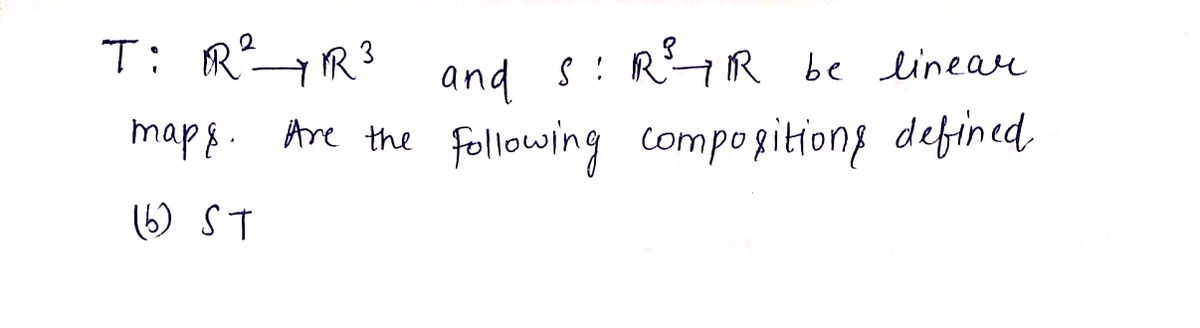 T: ℝ² → ℝ³ and S: ℝ³ → ℝ be linear
maps. Are the following compositions defined.
(b) ST